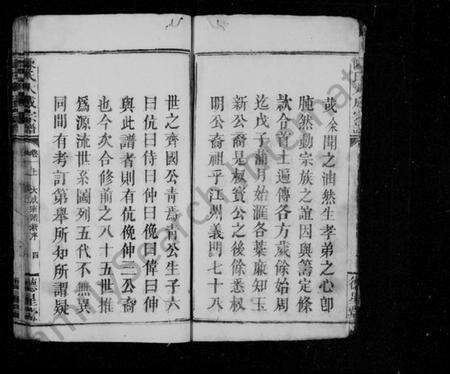 歲余聞之油然生孝弟之心卽
肫然動宗族之誼因與籌定條
款今首士遍傳各方歲餘始周
迄戊子蒲月始滙各葉廉知玉
新公裔是权賓公之後條悉权
明公裔祖乎江州義門七十八
世之齊國公青焉青公生子六
曰伉曰侍曰伸曰俛曰偉曰伸
與此譜者則有伉俛伸三公裔
也今次合修前之八十五世推
爲源流世系圖列五代不無異
同間有考訂第舉所知所謂疑
陳氏大成宗譜
卷上
四
德星堂